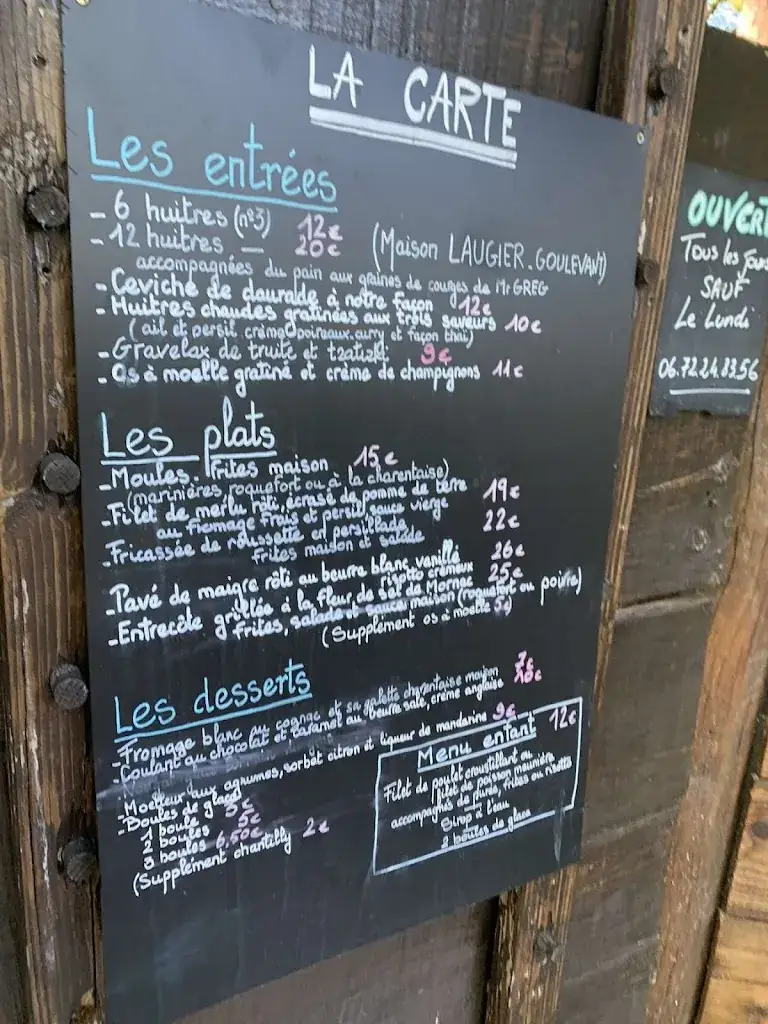 LA CARTE
Les entrées
- 6 huitres (n°3) 12€
- 12 huitres — 20€ (Maison LAUGIER.GOULEVANT)
accompagnées du pain aux graines de courges de Mr GREG
- Ceviche de daurade à notre façon 12€
- Huitres chaudes gratinées aux trois saveurs 10€
(ail et persil, crème poireaux.curry et façon thaï)
- Gravelax de truite et tzatziki 9€
- Os à moelle gratiné et crème de champignons 11€
Les plats
- Moules. Frites maison 15€
(marinières, roquefort ou à la charentaise)
- Filet de merlu rôti, écrasé de pomme de terre 19€
au fromage frais et persil, sauce vierge
- Fricassée de roussette en persillade 22€
Frites maison et salade
- Pavé de maigre rôti au beurre blanc vanillé 26€
risotto crémeux
- Entrecôte grillée à la fleur de sel de Mornac 25€
Frites, salade et sauce maison (roquefort ou poivre)
(Supplément os à moelle 5€)
Les desserts
- Fromage blanc au cognac et sa galette charentaise maison 7€
- Coulant au chocolat et caramel au beurre salé, crème anglaise 10€
- Moelleux aux agrumes, sorbet citron et liqueur de mandarine 9€
- Boules de glace
1 boule 3€
2 boules 5€
3 boules 6,50€
(Supplément chantilly 2€
Menu enfant 12€
Filet de poulet croustillant ou
filet de poisson meunière
accompagnés de purée, frites ou risotto
Sirop à l'eau
2 boules de glace
OUVERT
Tous les jours
SAUF
Le Lundi
06.72.24.83.56